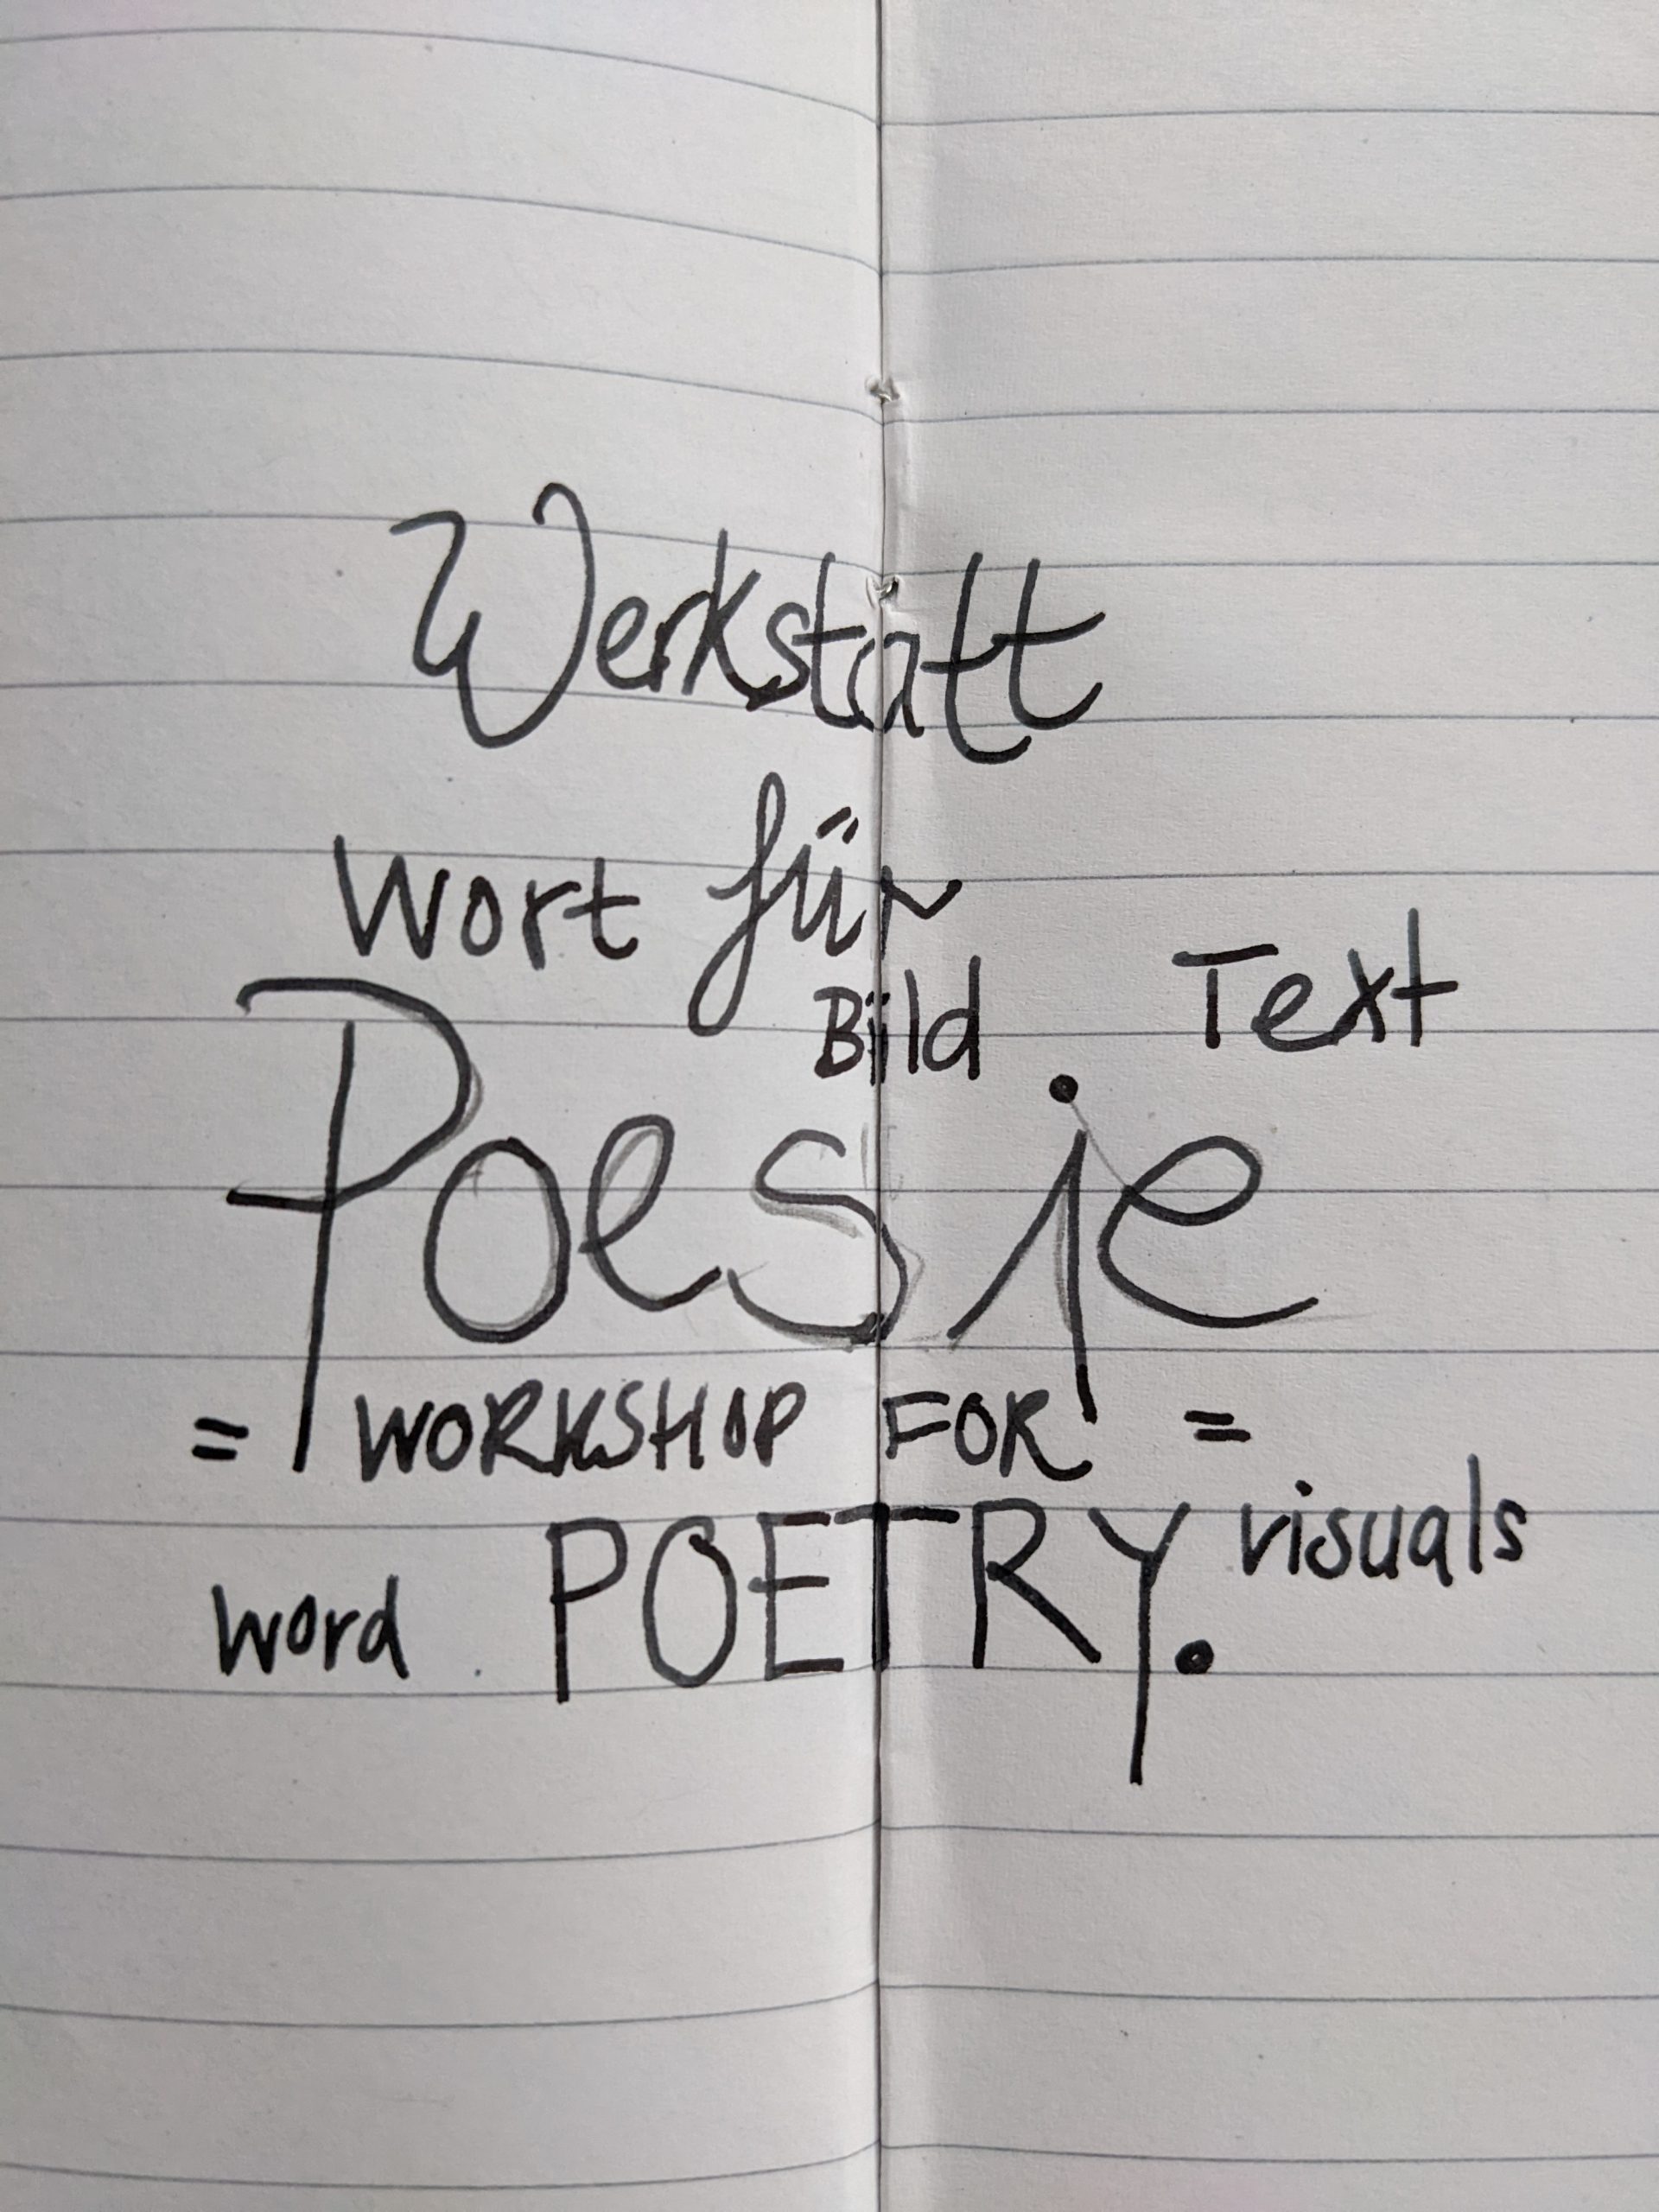 Werkstatt
Wort für
Bild Text
Poesie
= WORKSHOP FOR =
word POETRY. visuals